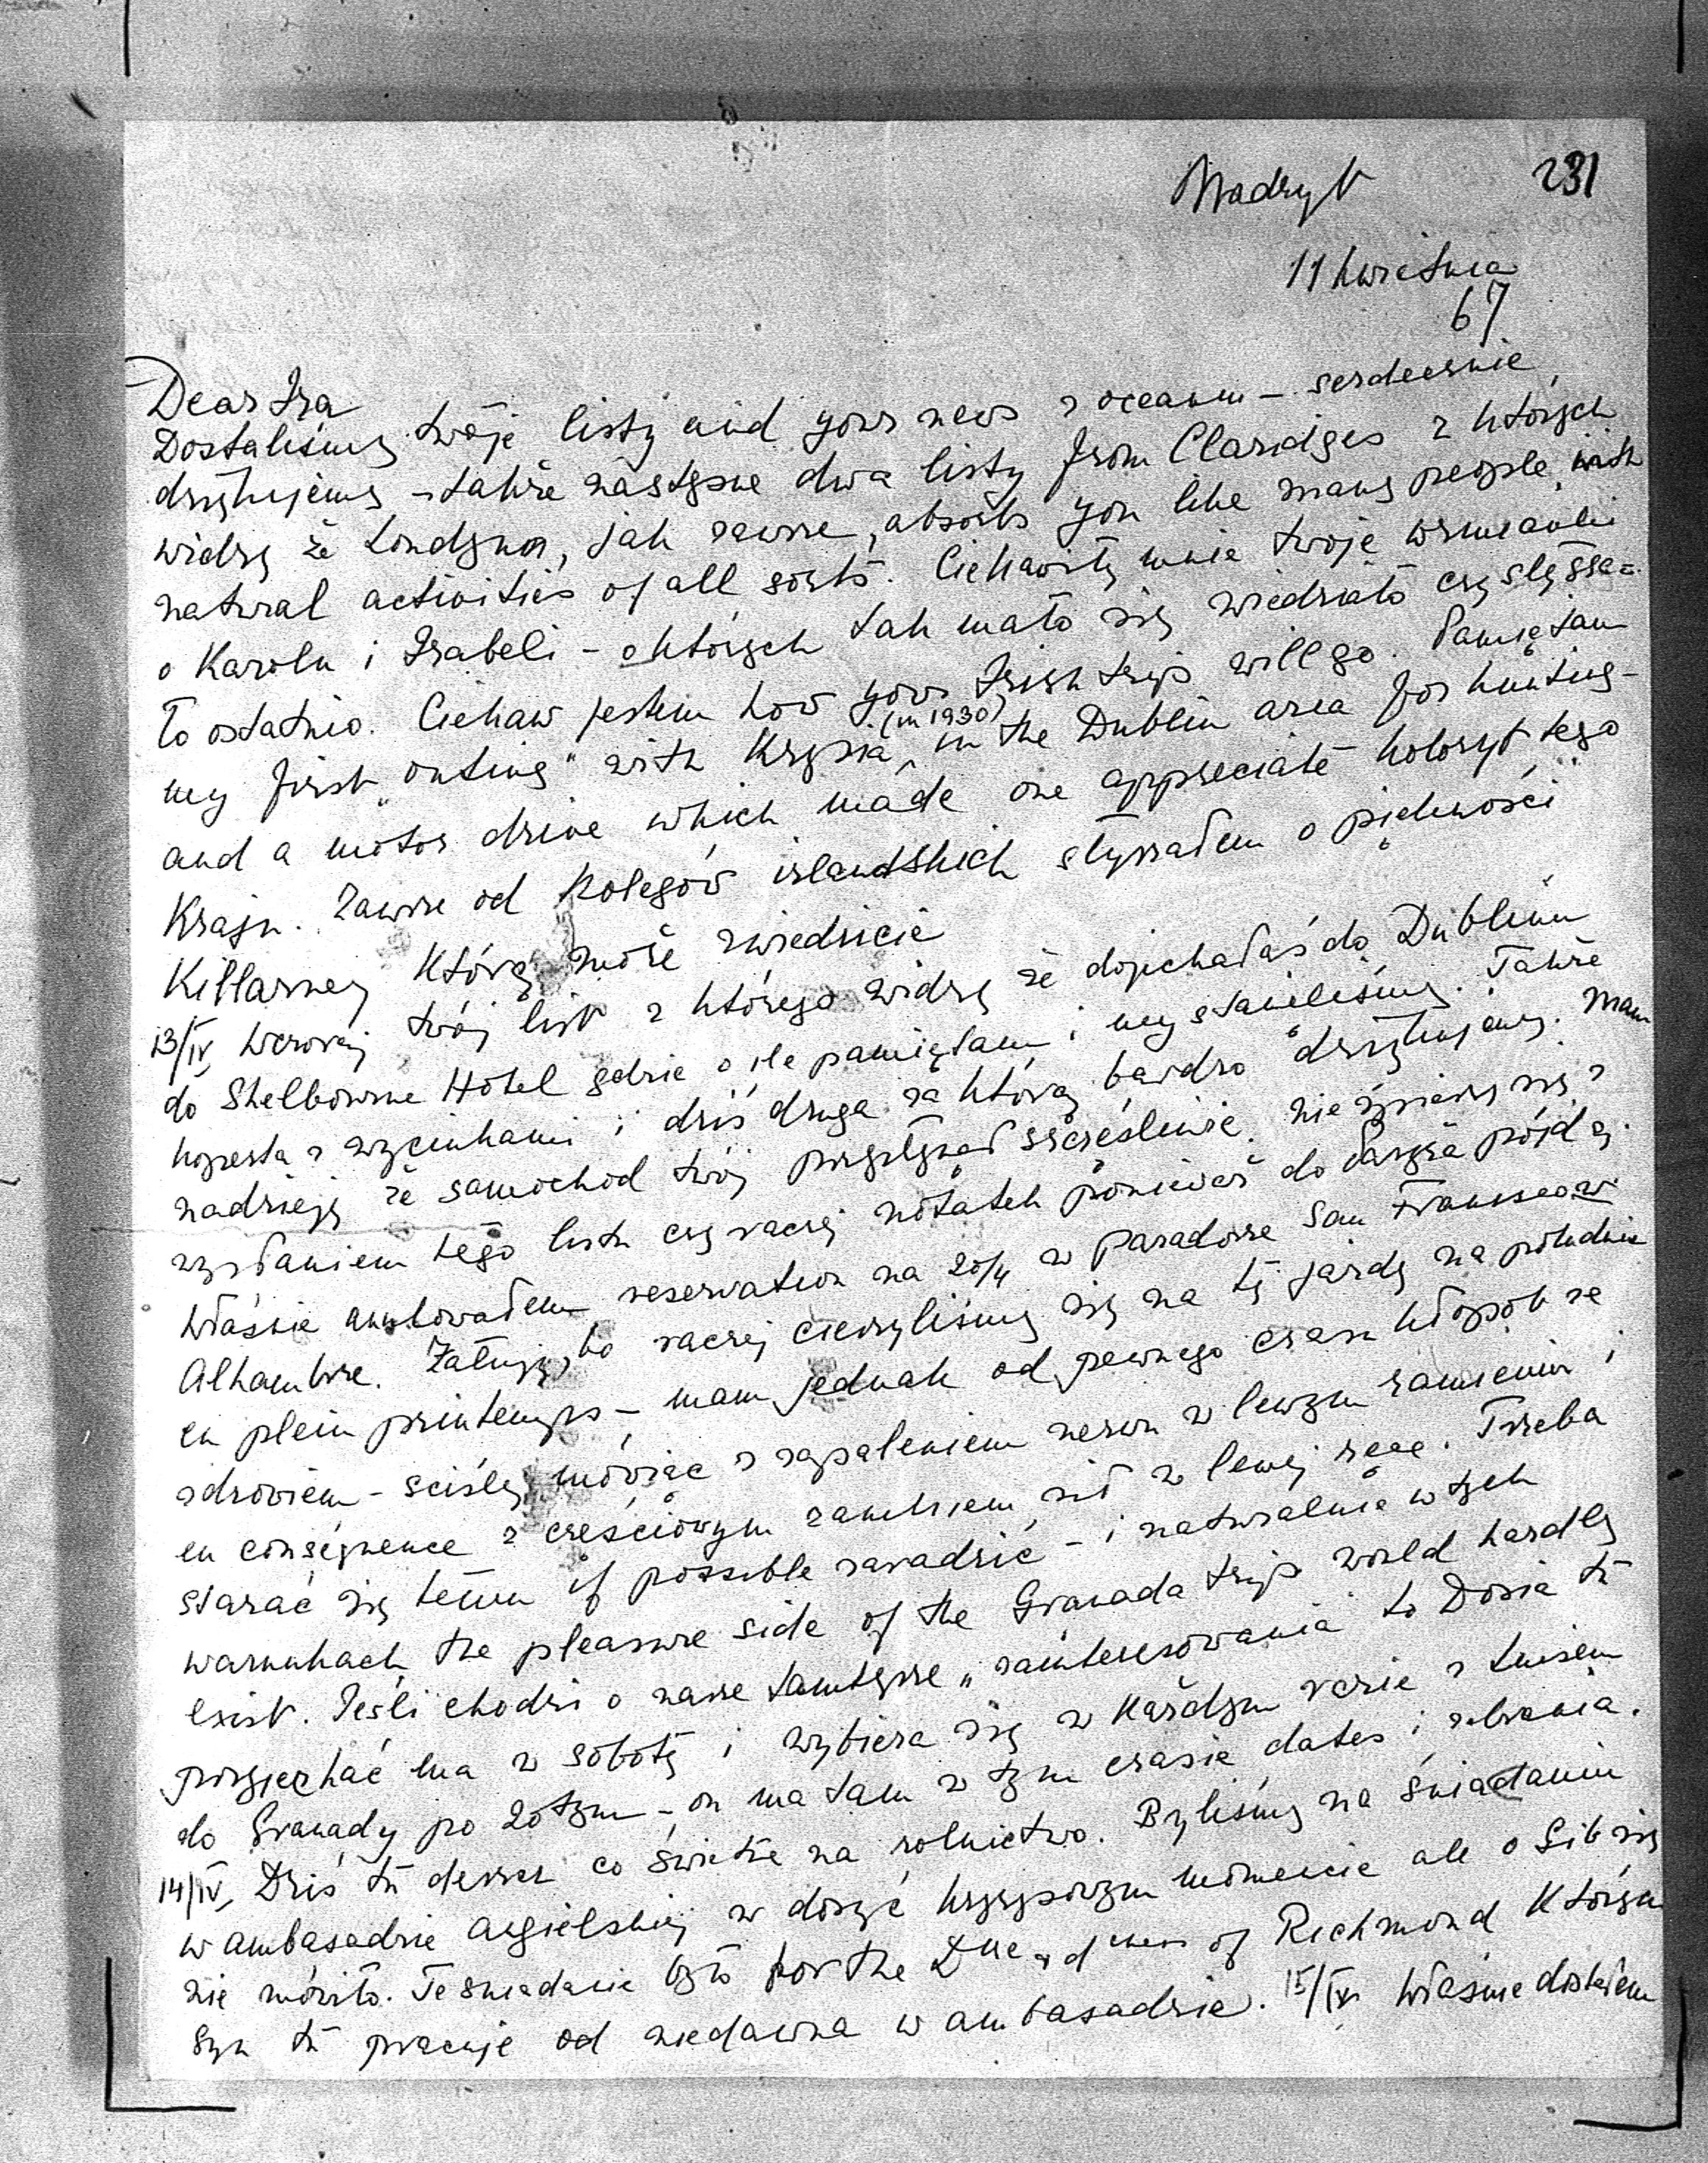 231
Madryt
11 kwietnia
67
Dear Iza
Dostaliśmy twoje listy and your news z oceanu – serdecznie
dziękujemy – także następne dwa listy from Claridges z których
widzę że Londyn, jak zawsze, absorbs you like many people with
natural activities of all sorts. Ciekawiły mnie twoje wzmianki
o Karolu i Izabeli – o których tak mało się wiedziało czy słysza=
ło ostatnio. Ciekaw jestem how your Irish trip will go. Pamiętam
my first „outing" with Krysia (in 1930) in the Dublin area for hunting –
and a motor drive which made one appreciate koloryt tego
Kraju. Zawsze od kolegów irlandskich słyszałem o piękności
Killarney którą może zwiedzicie
13/IV wczoraj twój list z którego widzę że dojechałaś do Dublinu
do Shelbourne Hotel gdzie o ile pamiętam i my staneliśmy. Także
koperta z wycinkami i dziś druga za którą bardzo dziękujemy. Mam
nadzieję że samochód twój przypłynął szczęśliwie. Nie śpieszę się z
wysłaniem tego listu czy raczej notatek ponieważ do Paryża pójdą.
Właśnie anulowałem reservation na 20/4 w Paradorze San Francisco w
Alhambrze. Żałuję, bo raczej cieszyliśmy się na tę jazdę na południe
en plein printemps – mam jednak od pewnego czasu kłopot ze
zdrowiem – ściśle mówiąc z zapaleniem nerwu w lewym ramieniu i
en conséquence z cześciowym zanikiem sił w lewej ręce. Trzeba
starać się temu if possible zaradzić – i naturalnie w tych
warunkach the pleasure side of the Granada trip would hardly
exist. Jeśli chodzi o nasze tamtejsze „zainteresowania to Dosia tu
przyjechać ma w sobotę i wybiera się w każdym razie z Luisem
do Granady po 20tym – on ma tam w tym czasie dates i zebrania.
14/IV Dziś tu deszcz co świetne na rolnictwo. Byliśmy na śniadaniu
w ambasadzie angielskiej w dosyć kryzysowym momencie ale o Gib się
nie mówiło. Te śniadanie było for the Duc & dchess of Richmond których
syn tu pracuje od niedawna w ambasadzie. 15/IV Właśnie dostałem